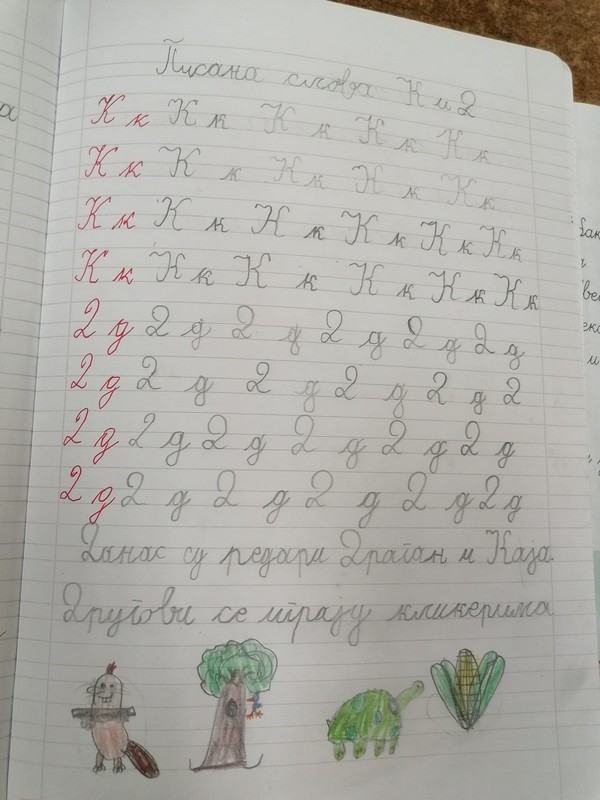 Писана слова К и Д
К к К к К к К к К к
К к К к К к К к К к
К к К к К к К к К к К к
К к К к К к К к К к К к
Д д Д д Д д Д д Д д Д д
Д д Д д Д д Д д Д д Д
Д д Д д Д д Д д Д д Д д
Д д Д д Д д Д д Д д Д д
Данас су редари Драган и Каја.
Другови се играју кликерима